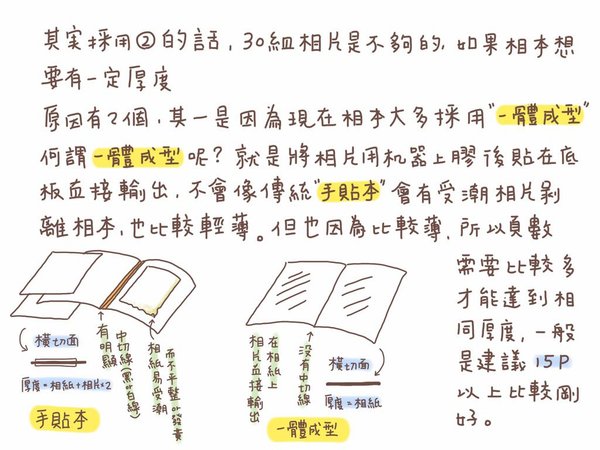 其実採用②的話，30組相片是不夠的，如果相本想
要有一定厚度
原因有2個，其一是因為現在相本大多採用"一體成型"
何謂一體成型呢？就是將相片用机器上膠後貼在底
板直接輸出，不會像傳統"手貼本"會有受潮相片剝
離相本，也比較輕薄。但也因為比較薄，所以頁數
需要比較多
才能達到相
同厚度，一般
是建議15P
以上比較剛
好。
橫切面
厚度=相紙+相片×2
手貼本
中切線(黑or白線)
有明顯
而不平整or發黃
相紙易受潮
在相紙上
相片直接輸出
沒有中切線
橫切面
厚度=相紙
一體成型